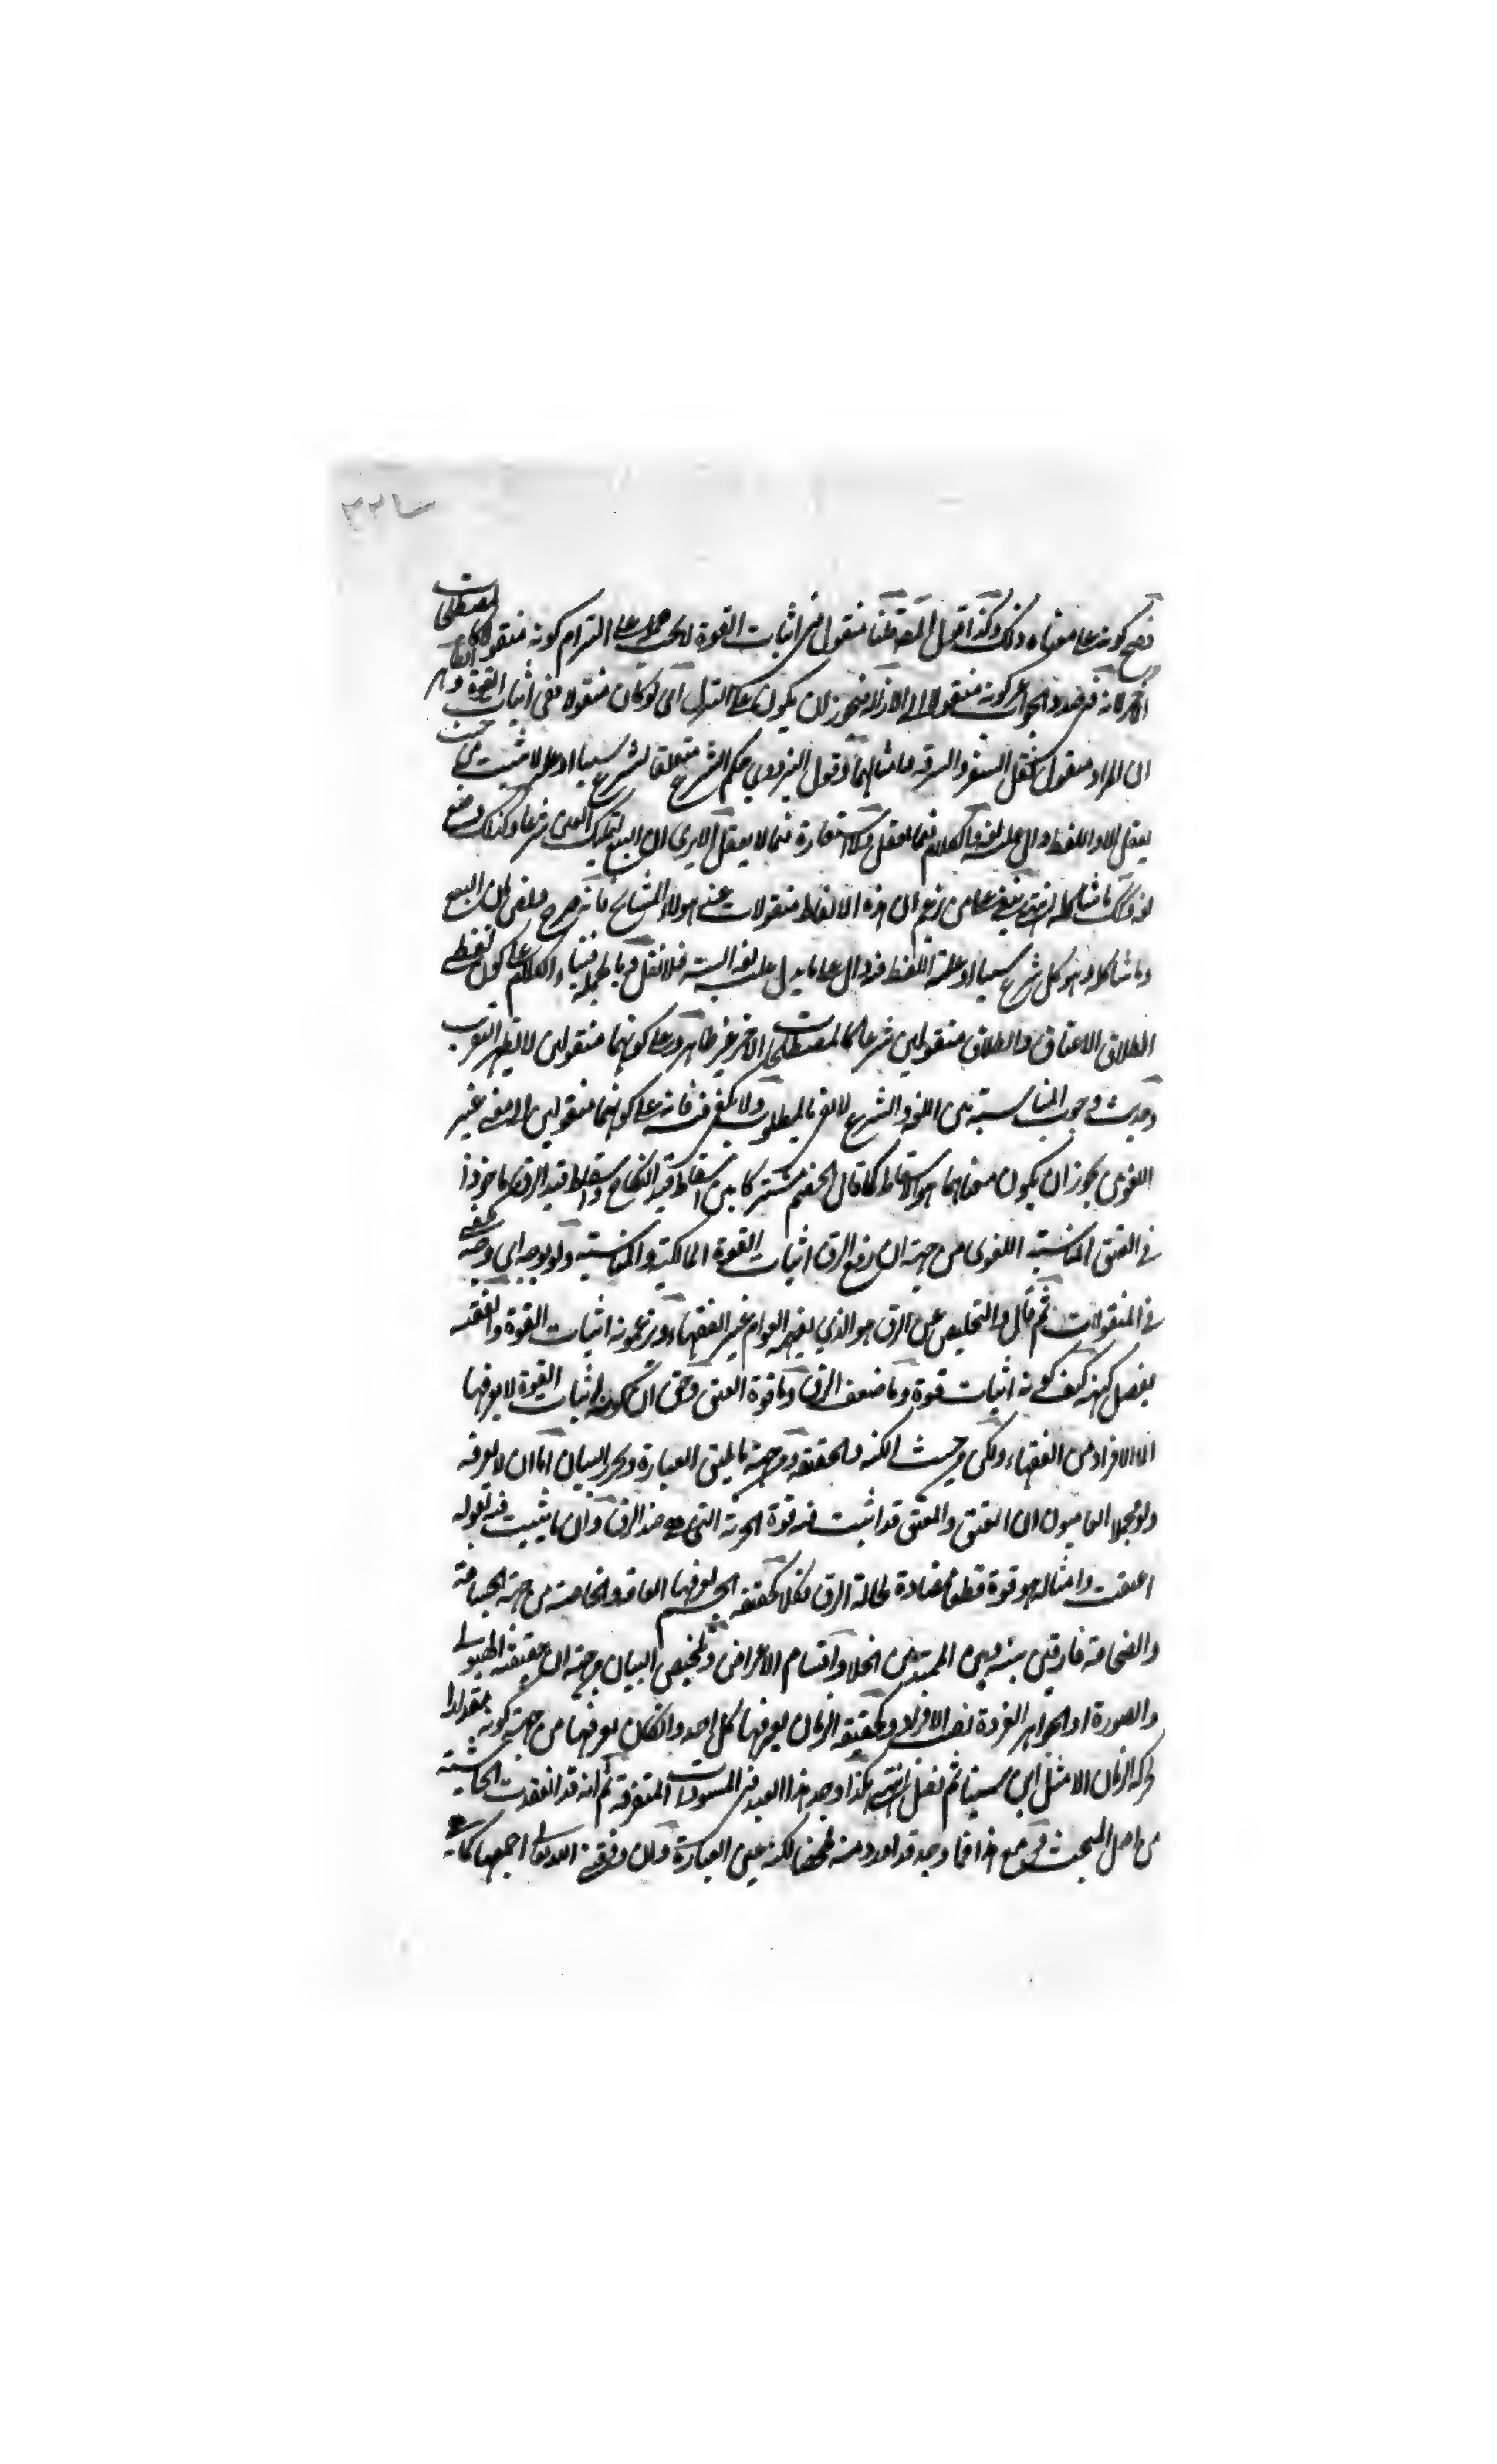 فصح كونه على معناه وذلك وكذا قول المصـ قلنا منقول في اثبات القوة لا يجب حمله على التزام كونه منقولا كالمصطلحات
الاخر لانه في صدد الجواب عن كونه منقولا الى الازالة فيجوز ان يكون على التنزل اى لو كان منقولا ففى اثبات القوة والظاهر
ان المراد منقول كنقل السفر والسرقة وامثالهما وقول البزدوي حكم الشرع متعلق لشرع سببا او علة لا يثبت من حيث
يعقل الا واللفظ دال عليه لغة والكلام فيما يعقل ولا استعارة فيما لا يعقل الا يرى ان البيع لتمليك العين شرعا وكذلك وضع
لغة وكذلك ما شاكله انتهى ينفى على من زعم ان هذه الالفاظ منقولات عند هؤلاء المشايخ فانه صرح ان البيع
وما شاكله وهو كل شرع سببا او علة اللفظ فيه دال على ما يدل عليه لغة البتة فلا نقل وبالجملة فبناء الكلام على كون لفظى
الطلاق الاعتاق والطلاق منقولين شرعا كالمصطلحات الاخر غير ظاهر وعلى كونهما منقولين لا يظهر التقريب
وحديث وجوب المناسبة بين اللغة والشرع لا يفى بالمطلوب ولا يكفى فيه فانه على كونهما منقولين الى معنى غير
اللغوى يجوز ان يكون معناهما هو الاسقاط كما قال الخصم مشتركا بين اسقاط قيد النكاح واسقاط قيد الرق ماخوذا
في العتق المناسبة اللغوى من جهة ان رفع الرق اثبات القوة المالكية والمناسبة ولو بوجه اى وجه يكفى
في المنقولات ثم قال والتخليص عن الرق هو الذي يفهمه العوام غير الفقهاء ويزعمونه اثبات القوة والفقيه
يفصل كنهه كيف كونه اثبات قوة وما ضعف الرق وما قوة العتق وحق ان كونه اثبات القوة لا يعرفها
الا الافراد من الفقهاء ولكن من حيث الكنه والحقيقة ومن جهة ما يليق العبارة وتحرير البيان اما ان لا يعرفه
ولو مجملا العاميون ان العتق والمعتق قد اثبت فيه قوة الحرية التى هى ضد الرق وان ما يثبت فيه بقوله
اعتقت وامثاله هو قوة قطعا مضادة لحالة الرق فكلا كحقيقة الجسم يعرفها العامة والخاصة من جهة الجسامة
والضخامة فارقين بينه وبين الممتد من الخلا واقسام الاعراض وتلخيص البيان من جهة ان حقيقته الهيولى
والصورة او الجواهر الفردة نصيب الافراد وكحقيقة الزمان يعرفها كل احد وان كان يعرفها من جهة كونه مقدارا
لحركة الزمان الا مثل ابن سينا ثم نقل انتهى هكذا وجد هذا العبد في المسودات المتفرقة ثم انه قد انعقدت الحاشية
من اصل المبحث مع هذا فما وجد قد اورد منه ملخصا لكنه عين العبارة وان وفقنى الله تعالى اجمعها كما هى